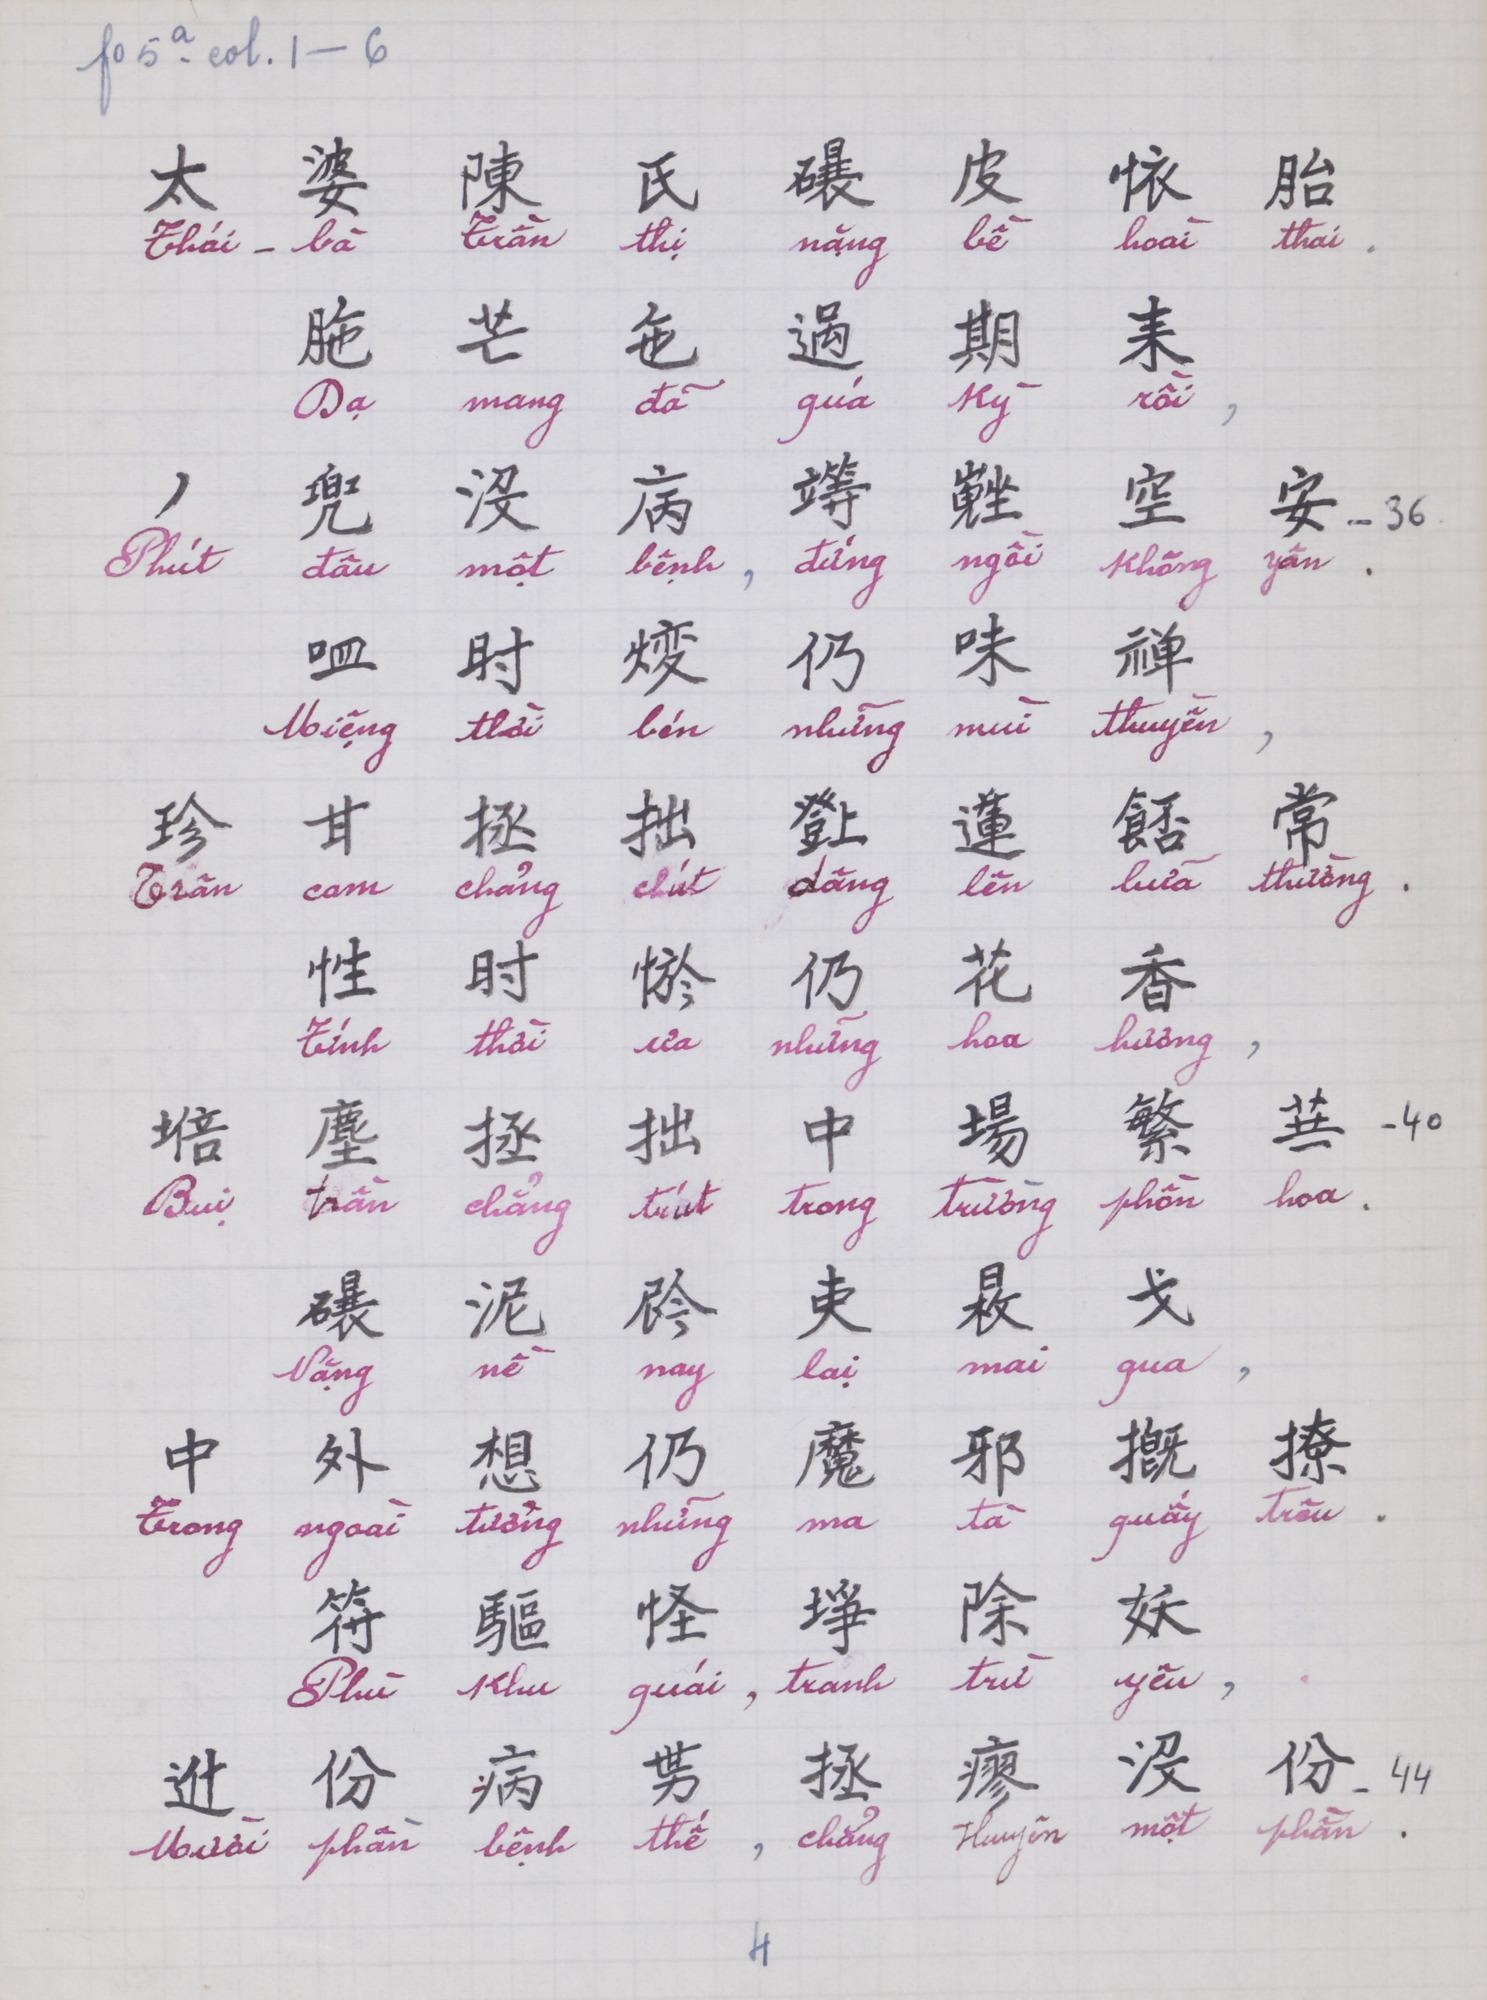 fo 5ª col. 1 — 6
太 婆 陳 氏 𥗾 皮 怀 胎
Thái - bà Trần thị nặng bề hoài thai .
胣 芒 㐌 過 期 耒
Dạ mang đã quá kỳ rồi ,
丿 兜 没 病 䇏 𡾵 空 安 - 36
Phút đâu một bệnh , đứng ngồi không yên .
𠰘 时 㷶 仍 味 禅
Miệng thời bén những mùi thuyền ,
珍 甘 拯 拙 𨖲 蓮 𩛷 常
Trân cam chẳng chút dâng lên bữa thường .
性 时 㤇 仍 花 香
Tính thời ưa những hoa hương ,
𡏧 塵 拯 拙 中 場 繁 花 - 40
Bụi trần chẳng trút trong trường phồn hoa .
𥗾 泥 𫢩 吏 𣈕 戈
Nặng nề nay lại mai qua ,
中 外 想 仍 魔 邪 摡 撩
Trong ngoài tưởng những ma tà quấy trêu .
符 驅 怪 埩 除 妖
Phù khu quái , tranh trừ yêu ,
𨒒 份 病 𠀧 拯 瘳 没 份 - 44
Mười phần bệnh thế , chẳng thuyên một phần .
4